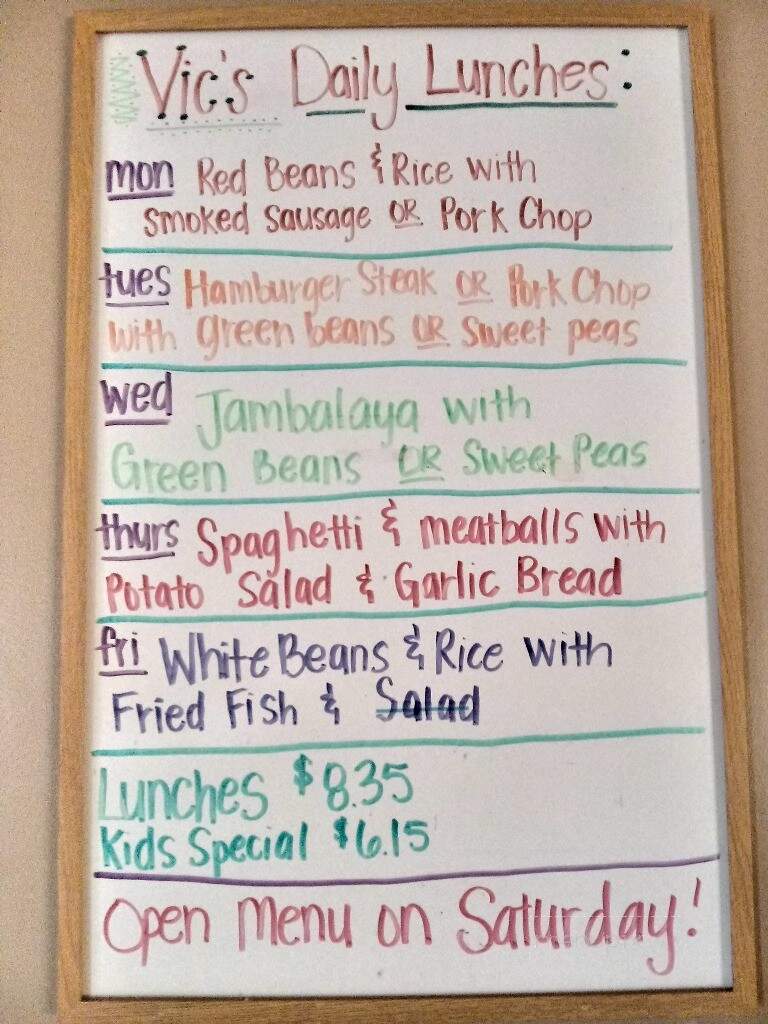 Vic's Daily Lunches:
mon Red Beans & Rice with
smoked sausage OR Pork Chop
tues Hamburger Steak OR Pork Chop
with green beans OR Sweet peas
wed Jambalaya with
Green Beans OR Sweet Peas
thurs Spaghetti & meatballs with
Potato Salad & Garlic Bread
fri White Beans & Rice with
Fried Fish & Salad
Lunches $8.35
Kids Special $6.15
Open Menu on Saturday!